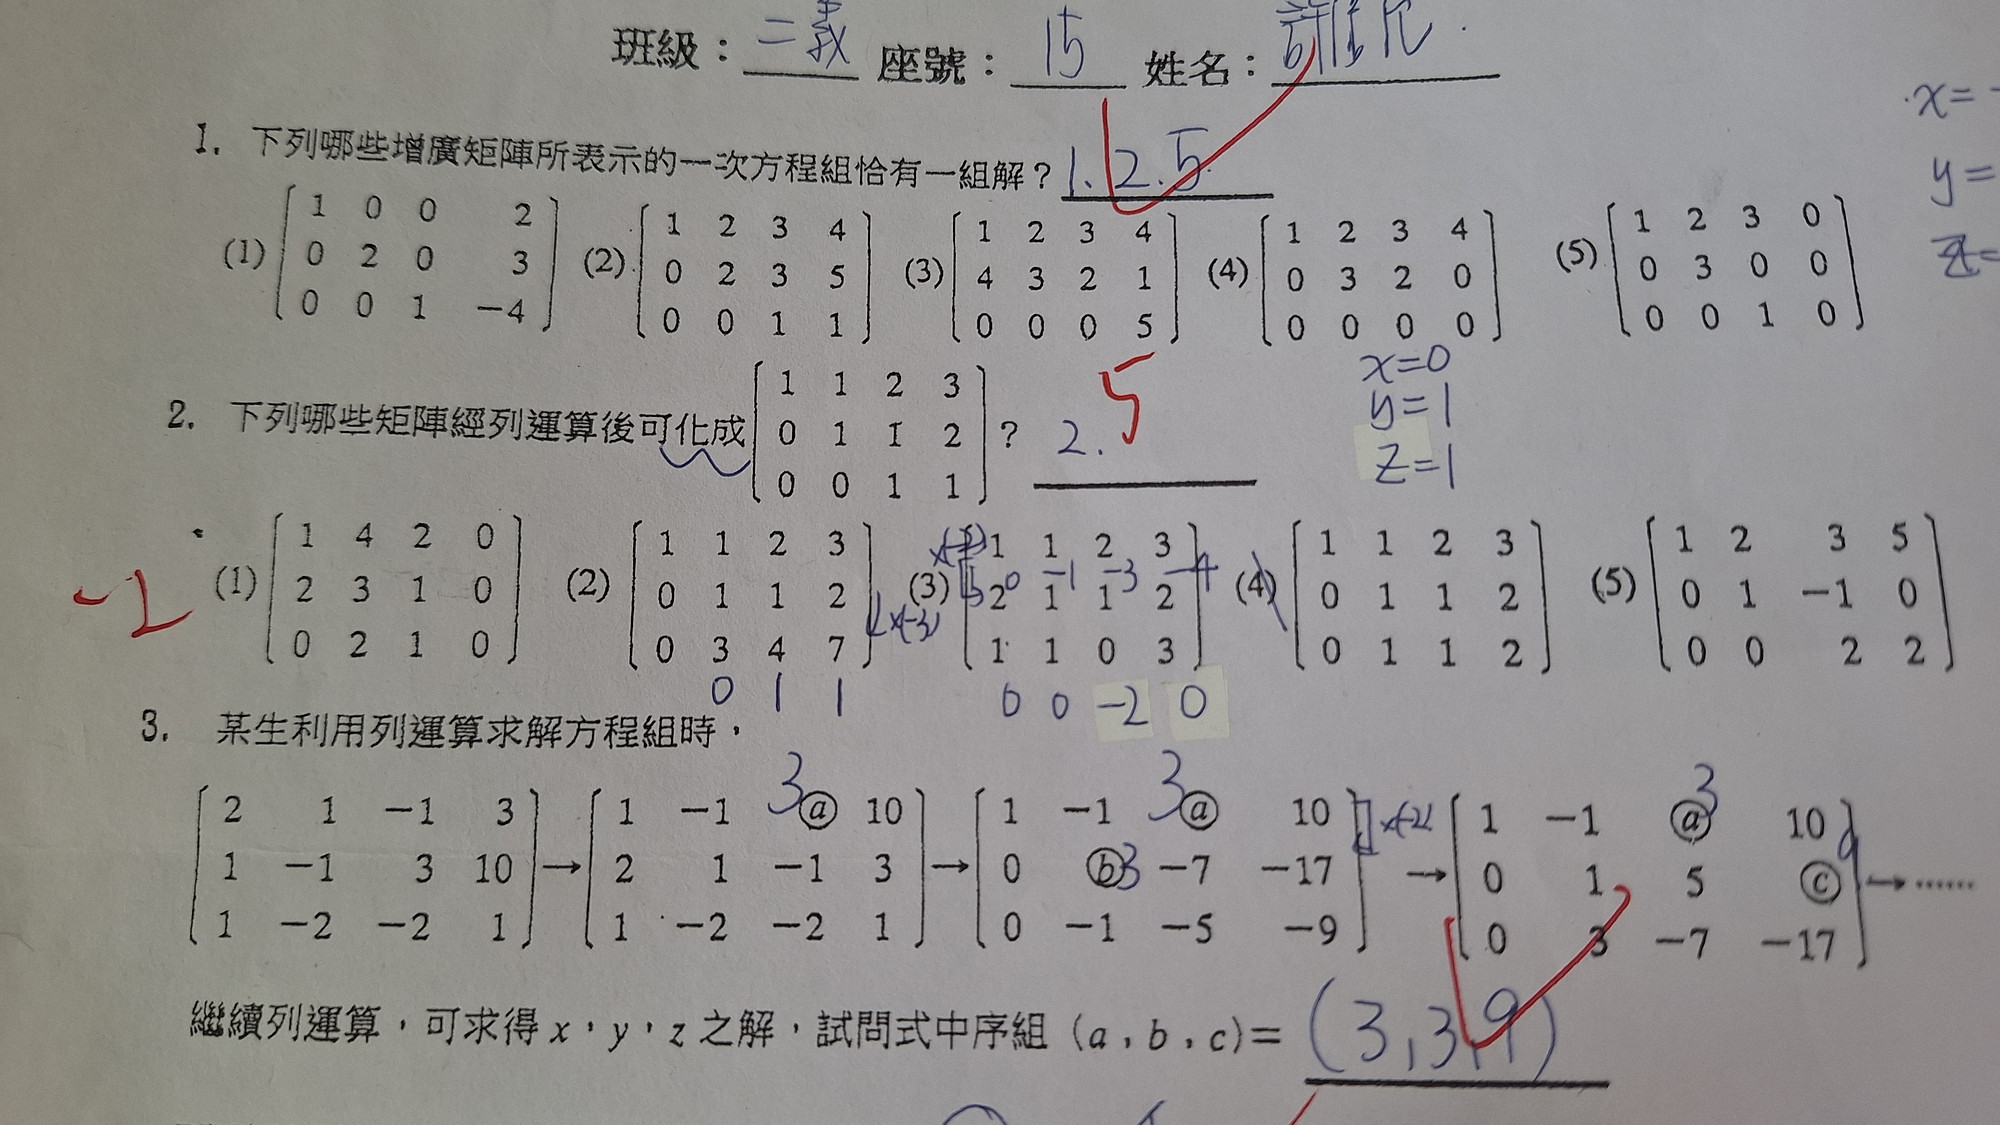 班級：二義 座號：15 姓名：
x=
y=
z=
1. 下列哪些增廣矩陣所表示的一次方程組恰有一組解？ 1.2.5
(1) [1 0 0 2 (2) [1 2 3 4 (3) [1 2 3 4 (4) [1 2 3 4 (5) [1 2 3 0
0 2 0 3 0 2 3 5 4 3 2 1 0 3 2 0 0 3 0 0
0 0 1 −4] 0 0 1 1] 0 0 0 5] 0 0 0 0] 0 0 1 0]
x=0
y=1
z=1
2. 下列哪些矩陣經列運算後可化成 [1 1 2 3 ？ 2. 5
0 1 1 2
0 0 1 1]
−2
(1) [1 4 2 0 (2) [1 1 2 3 (3) [1 1 2 3 (4) [1 1 2 3 (5) [1 2 3 5
2 3 1 0 0 1 1 2 2 1 1 2 0 1 1 2 0 1 −1 0
0 2 1 0] 0 3 4 7] 1 1 0 3] 0 1 1 2] 0 0 2 2]
×(-3)
0 -1 -3 -4
0 1 1 0 0 -2 0
3. 某生利用列運算求解方程組時，
3 3 3
[2 1 −1 3 [1 −1 ⓐ 10 [1 −1 ⓐ 10 ×(-2) [1 −1 ⓐ 10
1 −1 3 10 → 2 1 −1 3 → 0 ⓑ3 −7 −17 → 0 1 5 ⓒ 9 → ……
1 −2 −2 1] 1 −2 −2 1] 0 −1 −5 −9] 0 3 −7 −17]
繼續列運算，可求得 x，y，z 之解，試問式中序組 (a，b，c)= (3,3,9)